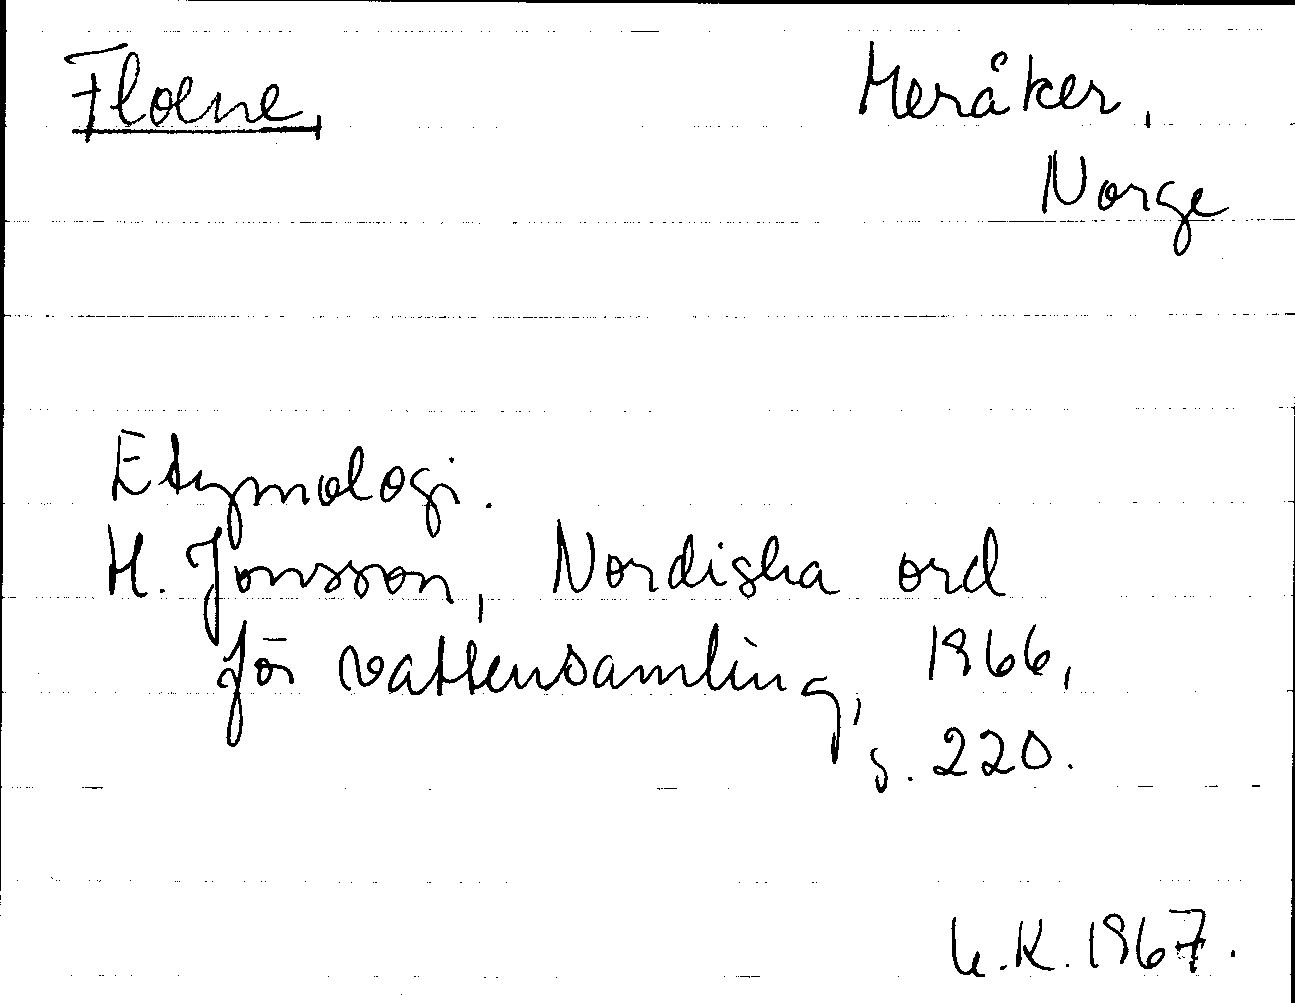 Floene, Meråker,
Norge
Etymologi.
H. Jonsson, Nordiska ord
för vattensamling, 1966,
s. 220.
U.K. 1967.